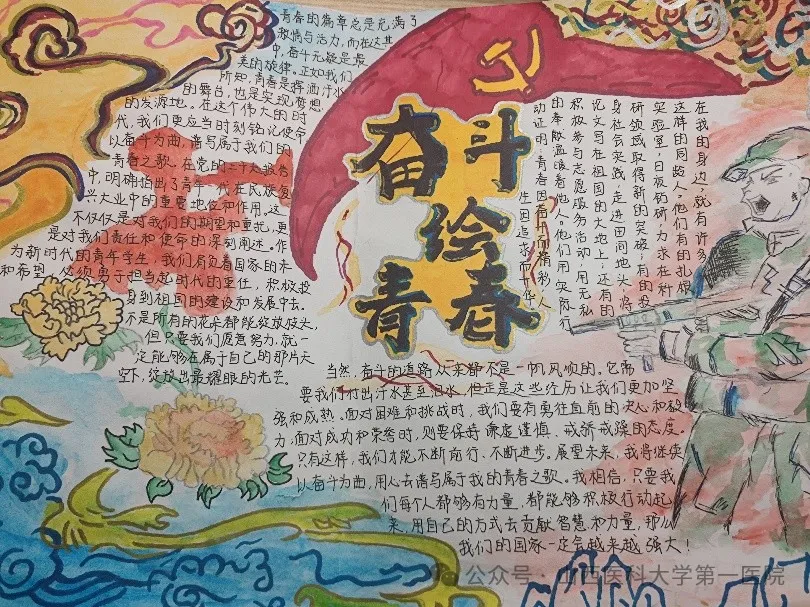 奋斗
绘
青春
青春的篇章总是充满了
激情与活力,而在这其
中,奋斗无疑是最
美的旋律。正如我们
所知,青春是挥洒汗水
的舞台,也是实现梦想
的发源地。在这个伟大的时
代,我们更应当时刻铭记使命
以奋斗为曲,谱写属于我们的
青春之歌。在党的二十大报告
中,明确指出了青年一代在民族复
兴大业中的重要地位和作用,这
不仅仅是对我们的期望和重托,更
是对我们责任和使命的深刻阐述。作
为新时代的青年学生,我们肩负着国家的未
和希望,必须勇于担当起时代的重任,积极投
身到祖国的建设和发展中去。
不是所有的花朵都能绽放枝头,
但只要我们愿意努力,就一
定能够在属于自己的那片天
空下,绽放出最耀眼的光芒。
在我的身边,就有许多
这样的同龄人。他们有的扎根
实验室,日夜钻研,力求在科
研领域取得新的突破;有的投
身社会实践,走进田间地头,将
论文写在祖国的大地上;还有的
积极参与志愿服务活动,用无私
的奉献温暖着他人。他们用实际行
动证明,青春因奋斗而精彩,人
生因追求而升华。
当然,奋斗的道路从来都不是一帆风顺的。它需
要我们付出汗水甚至泪水,但正是这些经历让我们更加坚
强和成熟。面对困难和挑战时,我们要有勇往直前的决心和毅
力;面对成功和荣誉时,则要保持谦虚谨慎、戒骄戒躁的态度。
只有这样,我们才能不断前行、不断进步。展望未来,我将继续
以奋斗为曲,用心去谱写属于我的青春之歌。我相信,只要我
们每个人都够有力量,都能够积极行动起
来,用自己的方式去贡献智慧和力量,那么
我们的国家一定会越来越强大!
公众号·山西医科大学第一医院